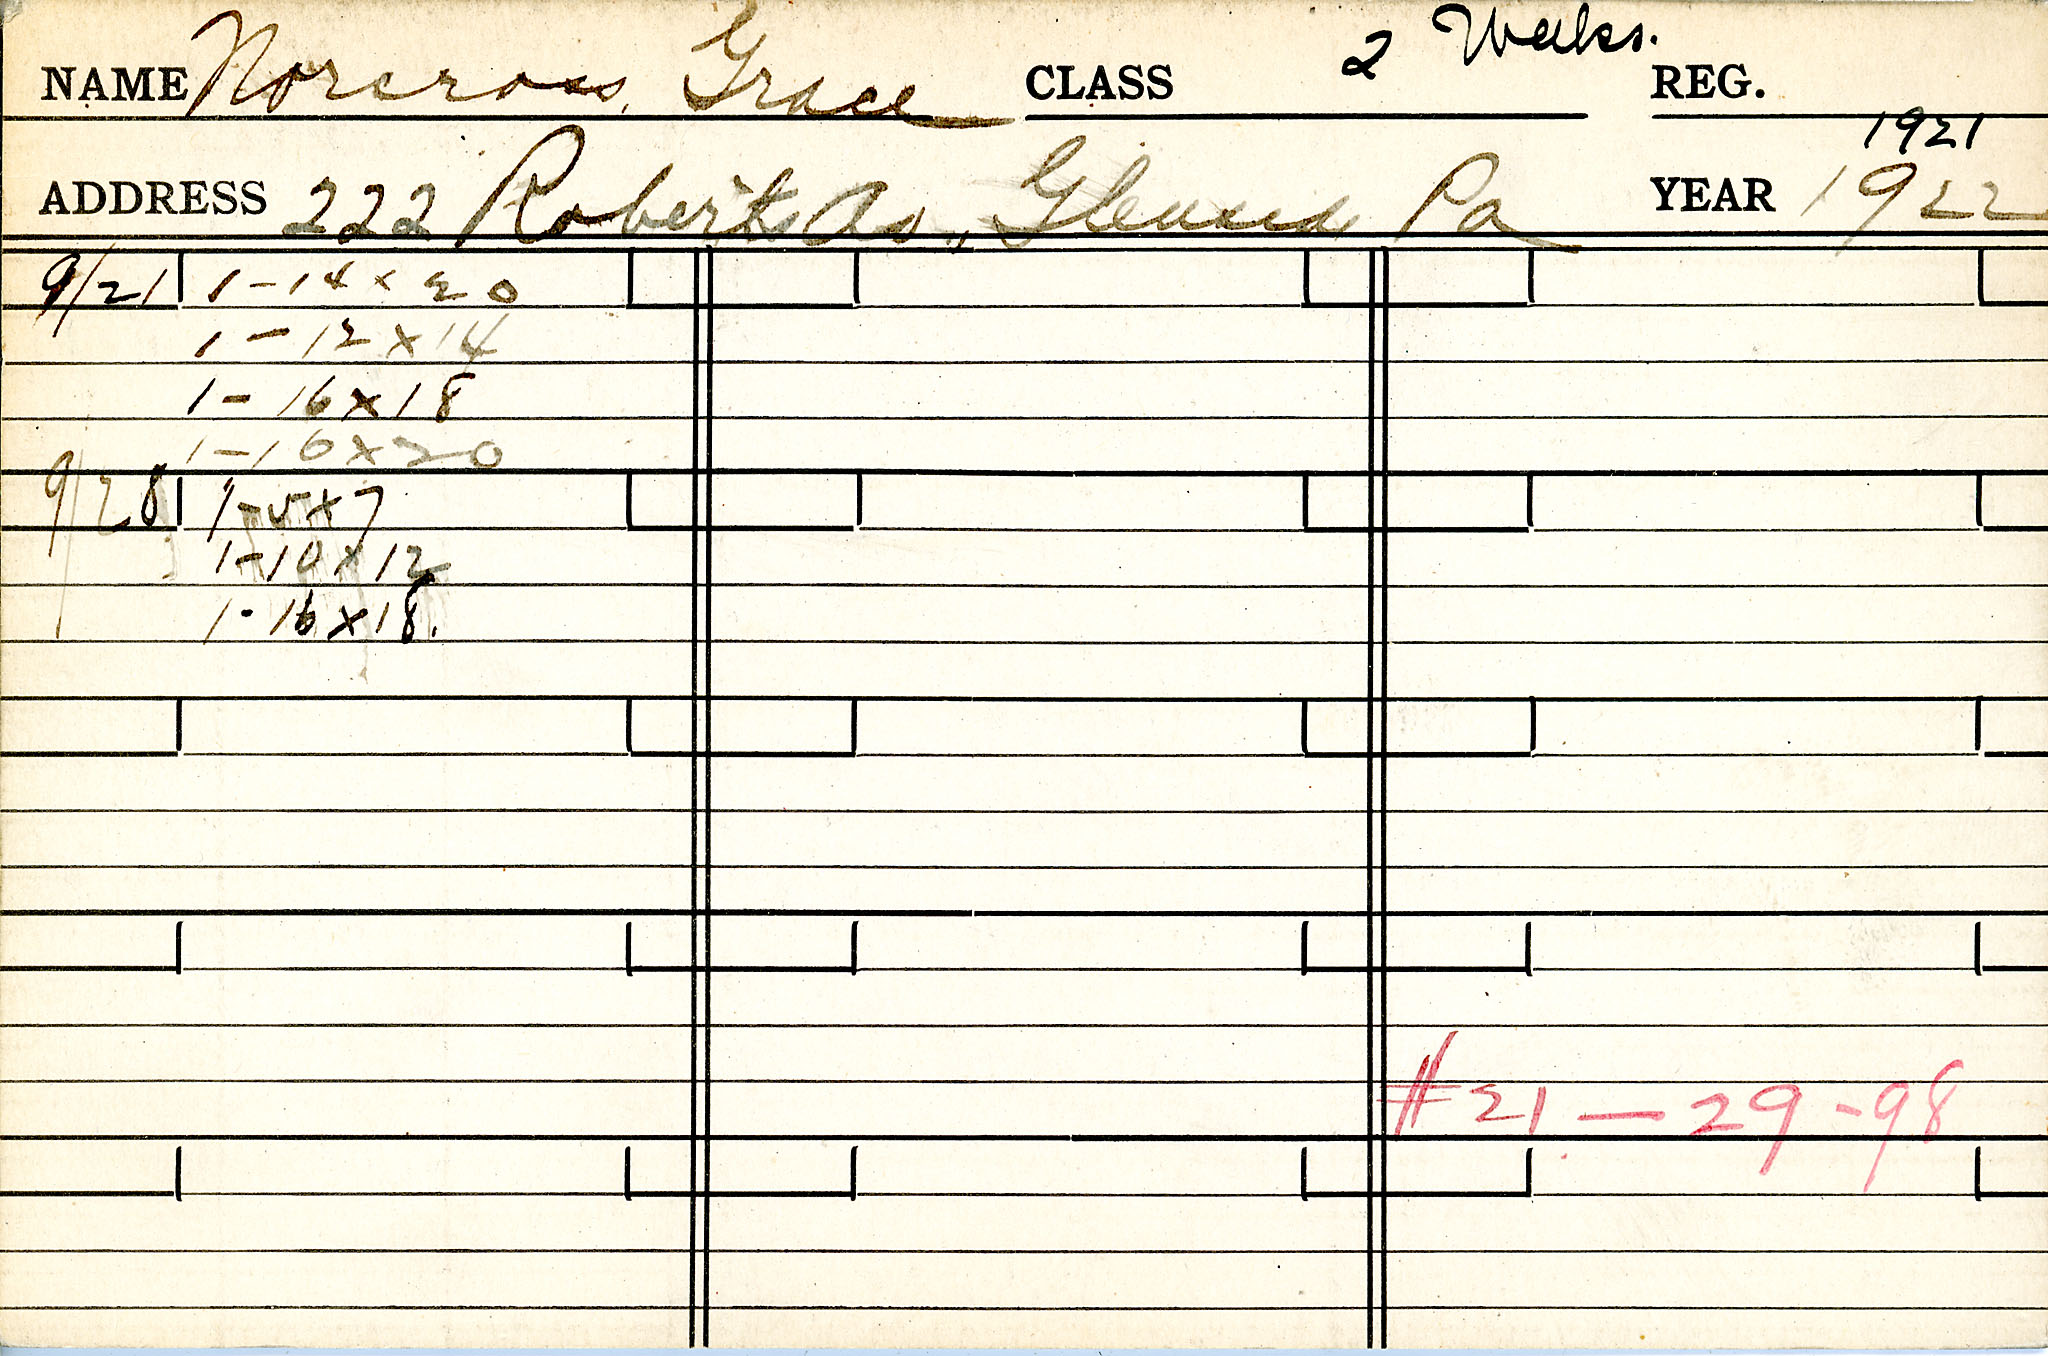 NAME Norcross, Grace CLASS 2 Weeks. REG.
1921
ADDRESS 222 Roberts Av., Pa YEAR 1922
9/21 1-14 x 20
1-12 x 14
1-16 x 18
1-16 x 20
9/28 1-5 x 7
1-10 x 12
1-16 x 18.
# 21 - 29 - 98